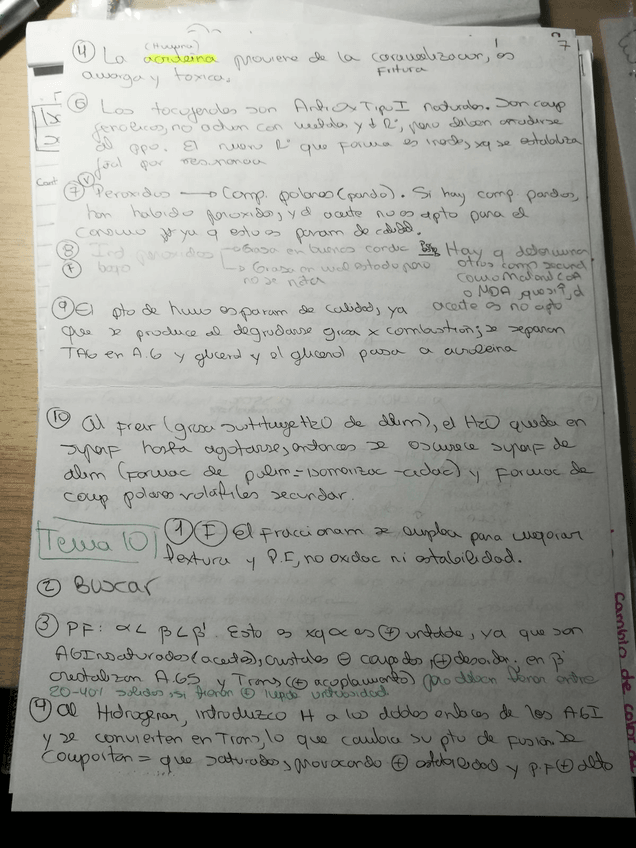 7
(Humana)
④ La acroleina proviene de la caramelizacion, es
amarga y toxica. Fritura
⑥ Los tocoferoles son AntiOx Tipo I naturales. Son comp
fenolicos, no actuan con metales y ↓ R·, pero deben añadirse
al ppo. El nuevo R· que forma es inest, xq se estabiliza
facil por resonancia
(V)
⑦ Peroxidos → Comp. polares (pardo). Si hay comp pardos,
han habido peroxidos, y el aceite no es apto para el
consumo ya q estos param de calidad.
⑧ Ind peroxidos → Grasa en buenas condic Hay q determinar
bajo → Grasa en mal estado pero otros comp secund
no se nota como Malondi
o MDA, que si ↑, el
aceite es no apto
⑨ El pto de humo es param de calidad, ya
que se produce al degradarse grasa x combustion; se separan
TAG en A.G y glicerol y el glicerol pasa a acroleina
⑩ Al freir (grasa sustituye H2O de alim), el H2O queda en
superf hasta agotarse, entonces se oscurece superf de
alim (formac de polim = isomerizac - ciclac) y formac de
comp polares volatiles secundar.
Tema 10
① (F) El fraccionam se emplea para mejorar
textura y P.F, no oxidac ni estabilidad.
② Buscar
③ PF: α < β < β'. Esto es xq α es ⊕ untable, ya que son
AGInsaturados (aceites), cristales ⊖ ⊕ desorden; en β'
cristalizan AGS y Trans (⊕ acoplamiento) pero deben tener entre
20-40% solidos, si tienen ⊕ untuosidad
④ Al Hidrogenar, introduzco H a los dobles enlaces de los AGI
y se convierten en Trans, lo que cambia su pto de fusion. Se
comportan = que saturados, provocando ⊕ estabilidad y P.F ⊕ alto
Cambio de color